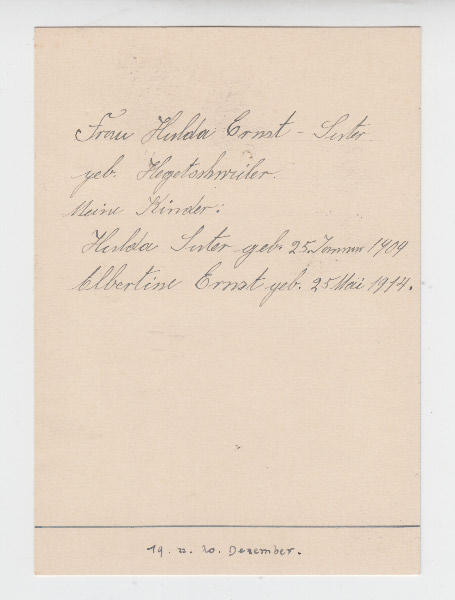 Frau Hulda Ernst - Suter
geb. Hegetschwiler.
Meine Kinder:
Hulda Suter geb. 25. Januar 1909
Albertine Ernst geb. 25 Mai 1914.
19. u. 20. Dezember.